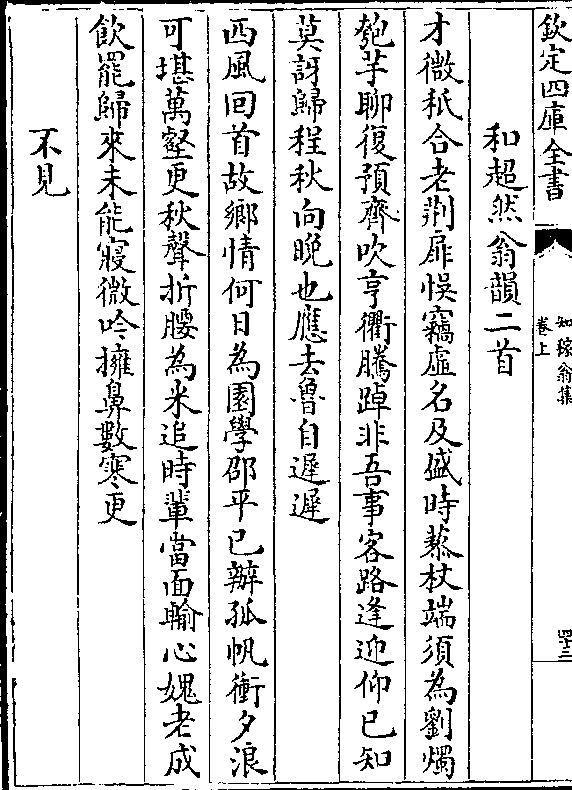 欽定四庫全書
知稼翁集
卷上
四十三
和超然翁韻二首
才微秖合老荆扉悞竊虛名及盛時藜杖端須為劉燭
匏芋聊復預齊吹亨衢騰踔非吾事客路逢迎仰已知
莫訝歸程秋向晚也應去魯自遲遲
西風回首故鄉情何日為園學邵平已辦孤帆衝夕浪
可堪萬壑更秋聲折腰為米追時輩當面輸心媿老成
飲罷歸來未能寢微吟擁鼻數寒更
不見